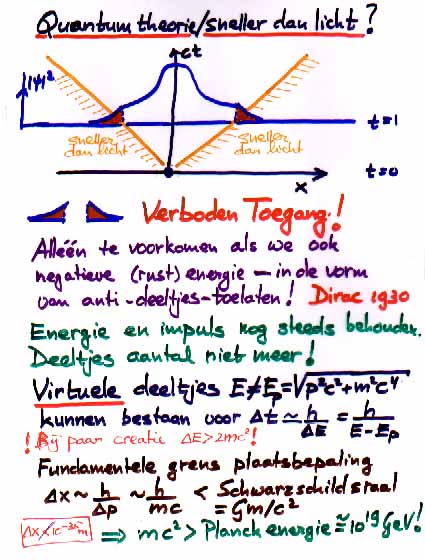 Quantum theorie/sneller dan licht?
|ψ|²
ct
t=1
sneller dan licht
sneller dan licht
x
t=0
Verboden Toegang!
Alléén te voorkomen als we ook
negatieve (rust) energie — in de vorm
van anti-deeltjes-toelaten! Dirac 1930
Energie en impuls nog steeds behouden.
Deeltjes aantal niet meer!
Virtuele deeltjes E≠Ep=√p²c²+m²c⁴
kunnen bestaan voor Δt ≃ h/ΔE = h/E-Ep
! Bij paar creatie ΔE>2mc²!
Fundamentele grens plaatsbepaling
Δx ~ h/Δp ~ h/mc < Schwarzschild straal
= Gm/c²
Δx<10⁻³⁵m ⇒ mc² > Planck energie ≅ 10¹⁹ GeV!